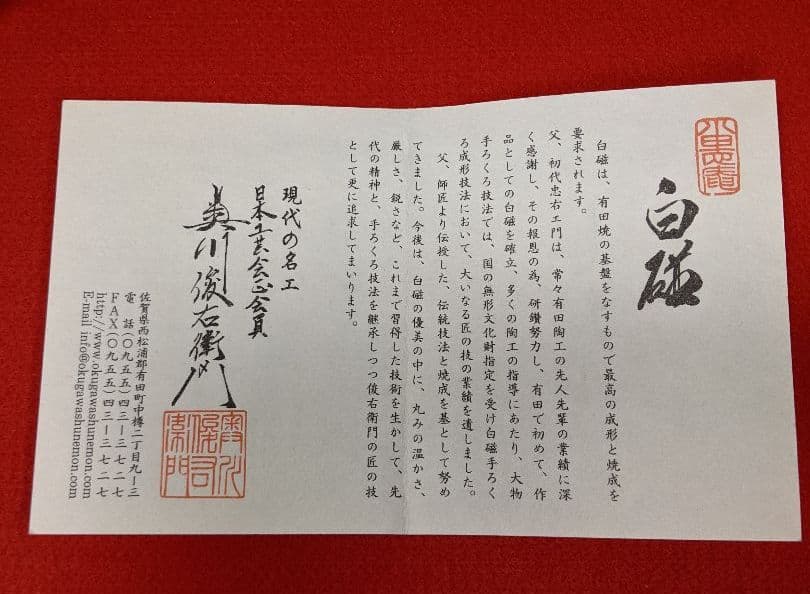 白磁
白磁は、有田焼の基盤をなすもので最高の成形と焼成を
要求されます。
父、初代忠右エ門は、常々有田陶工の先人先輩の業績に深
く感謝し、その報恩の為、研鑽努力し、有田で初めて、作
品としての白磁を確立、多くの陶工の指導にあたり、大物
手ろくろ技法では、国の無形文化財指定を受け白磁手ろく
ろ成形技法において、大いなる匠の技の業績を遺しました。
父、師匠より伝授した、伝統技法と焼成を基として努め
てきました。今後は、白磁の優美の中に、丸みの温かさ、
厳しさ、鋭さなど、これまで習得した技術を生かして、先
代の精神と、手ろくろ技法を継承しつつ俊右衛門の匠の技
として更に追求してまいります。
現代の名工
日本工芸会正会員
奥川俊右衛門
佐賀県西松浦郡有田町中樽二丁目九ー三
電話(〇九五五)四三ー三七二七
FAX(〇九五五)四三ー三七二七
http://www.okugawashunemon.com
E-mail info@okugawashunemon.com